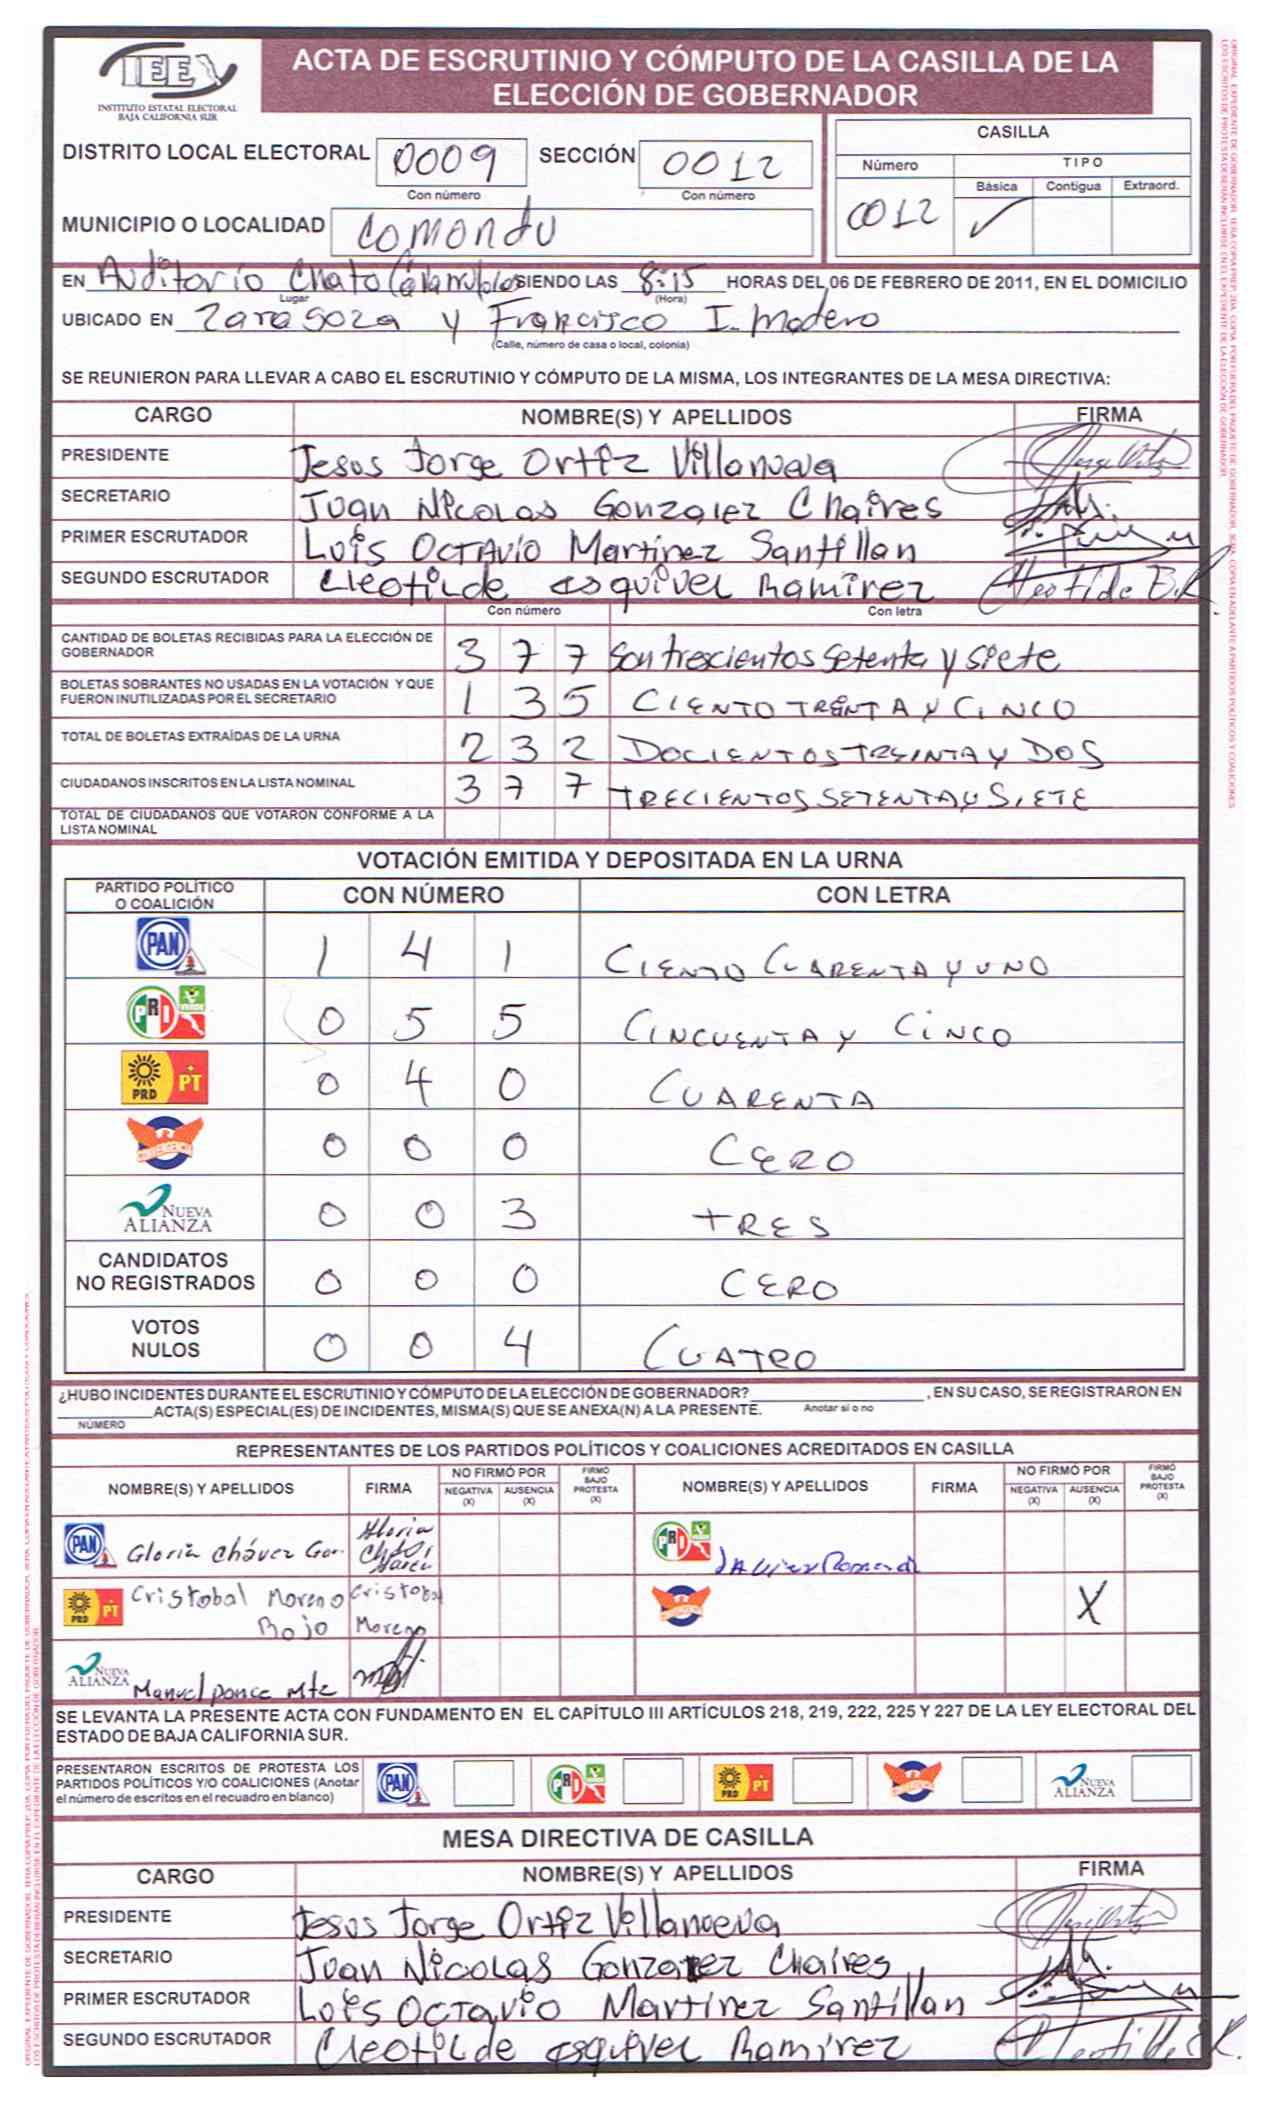 IEEX
INSTITUTO ESTATAL ELECTORAL
BAJA CALIFORNIA SUR
ACTA DE ESCRUTINIO Y CÓMPUTO DE LA CASILLA DE LA
ELECCIÓN DE GOBERNADOR
DISTRITO LOCAL ELECTORAL 0009 SECCIÓN 0012
Con número Con número
MUNICIPIO O LOCALIDAD Comondu
CASILLA
Número TIPO
Básica Contigua Extraord.
0012 ✓
EN Auditorio Chato Covarrubias SIENDO LAS 8:15 HORAS DEL 06 DE FEBRERO DE 2011, EN EL DOMICILIO
Lugar (Hora)
UBICADO EN Zaragoza y Francisco I. Madero
(Calle, número de casa o local, colonia)
SE REUNIERON PARA LLEVAR A CABO EL ESCRUTINIO Y CÓMPUTO DE LA MISMA, LOS INTEGRANTES DE LA MESA DIRECTIVA:
CARGO NOMBRE(S) Y APELLIDOS FIRMA
PRESIDENTE Jesus Jorge Ortiz Villanueva
SECRETARIO Juan Nicolas Gonzalez Chaires
PRIMER ESCRUTADOR Luis Octavio Martinez Santillan
SEGUNDO ESCRUTADOR Cleotilde esquivel Ramirez Cleotilde E.R.
Con número Con letra
CANTIDAD DE BOLETAS RECIBIDAS PARA LA ELECCIÓN DE
GOBERNADOR 3 7 7 Son trescientos setenta y siete
BOLETAS SOBRANTES NO USADAS EN LA VOTACIÓN Y QUE
FUERON INUTILIZADAS POR EL SECRETARIO 1 3 5 CIENTO TREINTA Y CINCO
TOTAL DE BOLETAS EXTRAÍDAS DE LA URNA 2 3 2 DOCIENTOS TREINTA Y DOS
CIUDADANOS INSCRITOS EN LA LISTA NOMINAL 3 7 7 TRECIENTOS SETENTA Y SIETE
TOTAL DE CIUDADANOS QUE VOTARON CONFORME A LA
LISTA NOMINAL
VOTACIÓN EMITIDA Y DEPOSITADA EN LA URNA
PARTIDO POLÍTICO
O COALICIÓN CON NÚMERO CON LETRA
PAN 1 4 1 CIENTO CUARENTA Y UNO
PRI VERDE 0 5 5 CINCUENTA Y CINCO
PRD PT 0 4 0 CUARENTA
CONVERGENCIA 0 0 0 CERO
NUEVA
ALIANZA 0 0 3 TRES
CANDIDATOS
NO REGISTRADOS 0 0 0 CERO
VOTOS
NULOS 0 0 4 CUATRO
¿HUBO INCIDENTES DURANTE EL ESCRUTINIO Y CÓMPUTO DE LA ELECCIÓN DE GOBERNADOR? , EN SU CASO, SE REGISTRARON EN
ACTA(S) ESPECIAL(ES) DE INCIDENTES, MISMA(S) QUE SE ANEXA(N) A LA PRESENTE. Anotar sí o no
NÚMERO
REPRESENTANTES DE LOS PARTIDOS POLÍTICOS Y COALICIONES ACREDITADOS EN CASILLA
NOMBRE(S) Y APELLIDOS FIRMA NO FIRMÓ POR NEGATIVA (X) AUSENCIA (X) FIRMÓ BAJO PROTESTA (X) NOMBRE(S) Y APELLIDOS FIRMA NO FIRMÓ POR NEGATIVA (X) AUSENCIA (X) FIRMÓ BAJO PROTESTA (X)
PAN Gloria Chávez Gloria Chávez PRI VERDE Javier
PRD PT Cristobal Moreno Rojo Cristobal Moreno CONVERGENCIA X
NUEVA ALIANZA Manuel Ponce Mtz
SE LEVANTA LA PRESENTE ACTA CON FUNDAMENTO EN EL CAPÍTULO III ARTÍCULOS 218, 219, 222, 225 Y 227 DE LA LEY ELECTORAL DEL
ESTADO DE BAJA CALIFORNIA SUR.
PRESENTARON ESCRITOS DE PROTESTA LOS
PARTIDOS POLÍTICOS Y/O COALICIONES (Anotar
el número de escritos en el recuadro en blanco) PAN PRI VERDE PRD PT CONVERGENCIA NUEVA ALIANZA
MESA DIRECTIVA DE CASILLA
CARGO NOMBRE(S) Y APELLIDOS FIRMA
PRESIDENTE Jesus Jorge Ortiz Villanueva
SECRETARIO Juan Nicolas Gonzalez Chaires
PRIMER ESCRUTADOR Luis Octavio Martinez Santillan
SEGUNDO ESCRUTADOR Cleotilde esquivel Ramirez Cleotilde E.R.